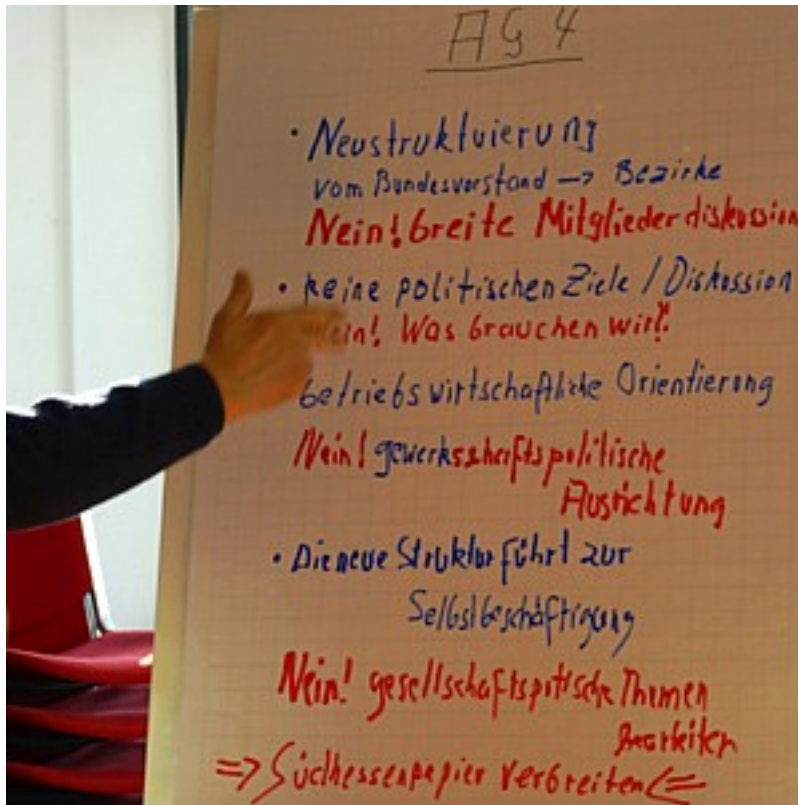 AG 4
• Neustruktuierung
vom Bundesvorstand → Bezirke
Nein! breite Mitgliederdiskussion
• keine politischen Ziele / Diskussion
Nein! Was brauchen wir?!
betriebswirtschaftliche Orientierung
Nein! gewerksschaftspolitische
Ausrichtung
• Die neue Struktur führt zur
Selbstbeschäftigung
Nein! gesellschaftspitische Themen
bearbeiten
=> Südhessenpapier verbreiten <=